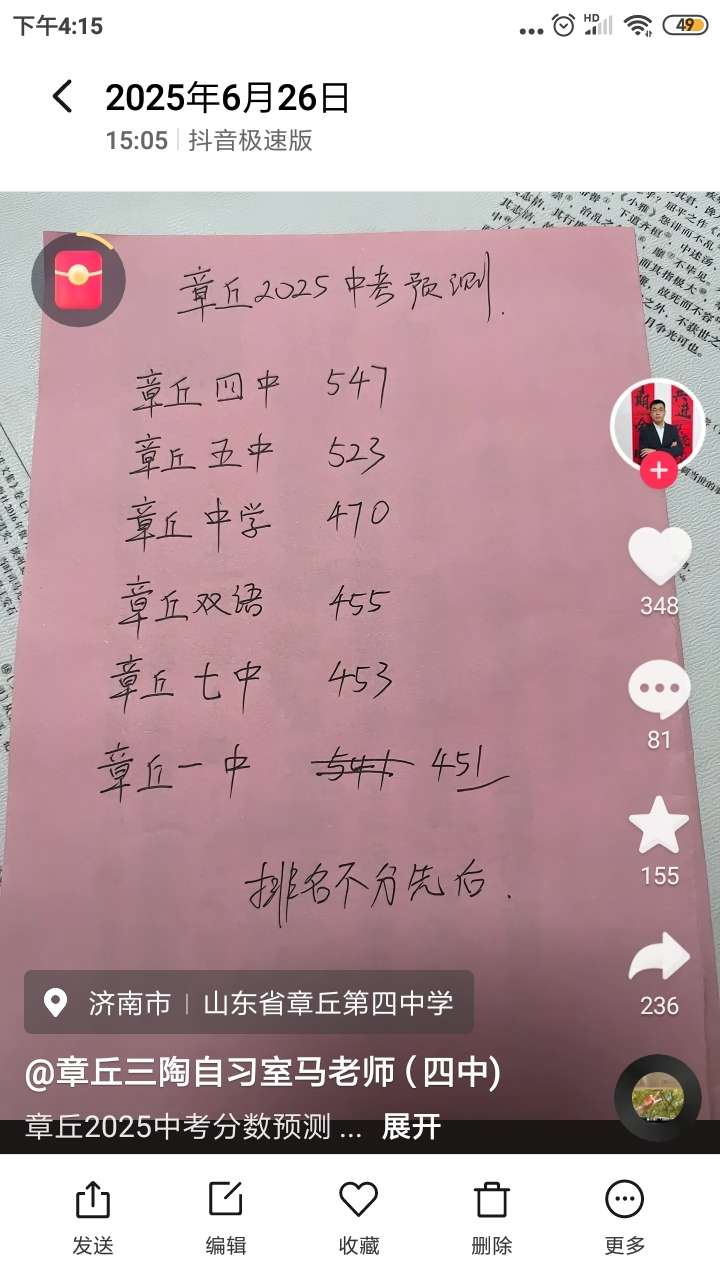 下午4:15
HD
49
2025年6月26日
15:05 抖音极速版
章丘2025中考预测.
章丘四中 547
章丘五中 523
章丘中学 470
章丘双语 455
章丘七中 453
章丘一中 451
排名不分先后.
348
81
155
236
济南市 山东省章丘第四中学
@章丘三陶自习室马老师(四中)
章丘2025中考分数预测 ... 展开
发送 编辑 收藏 删除 更多